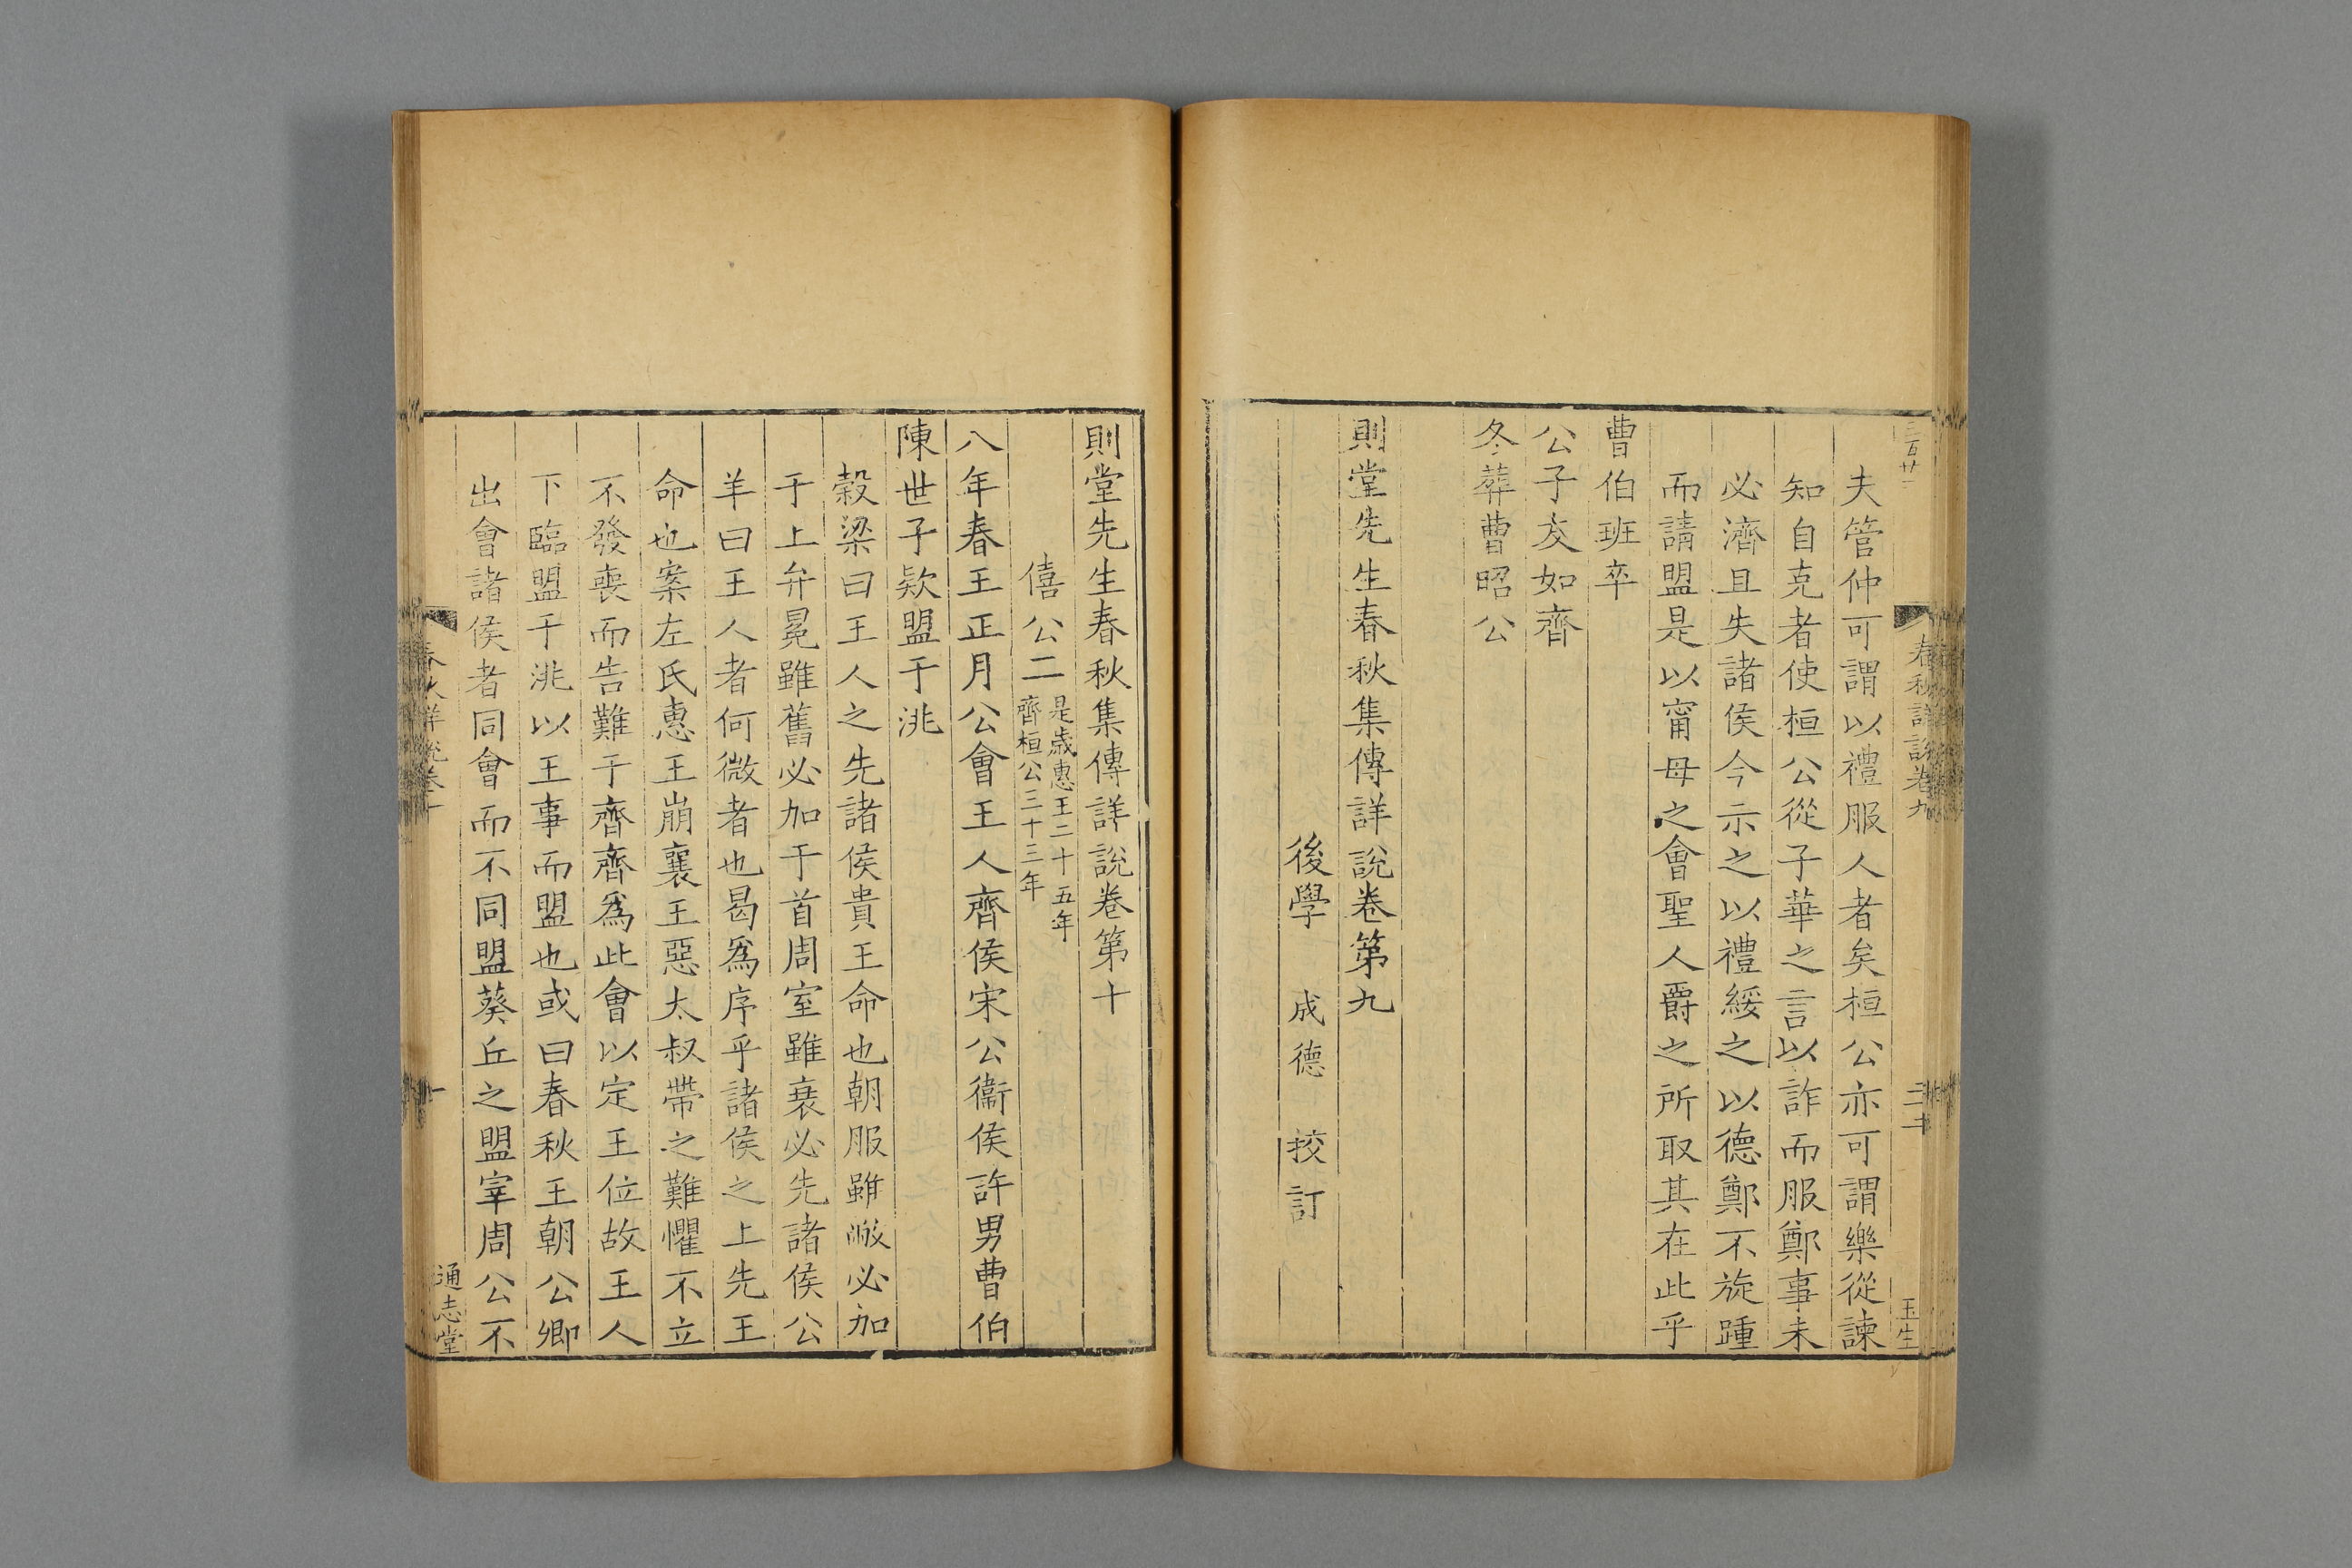 夫管仲可謂以禮服人者矣桓公亦可謂樂從諫
知自克者使桓公從子華之言以詐而服鄭事未
必濟且失諸侯今示之以禮綏之以德鄭不旋踵
而請盟是以甯母之會聖人爵之所取其在此乎
曹伯班卒
公子友如齊
冬葬曹昭公
則堂先生春秋集傳詳說卷第九
後學 成德 挍訂
春秋詳說卷九
二十
玉生
則堂先生春秋集傳詳說卷第十
僖公二 是歲惠王二十五年
齊桓公三十三年
八年春王正月公會王人齊侯宋公衞侯許男曹伯
陳世子欵盟于洮
穀梁曰王人之先諸侯貴王命也朝服雖敝必加
于上弁冕雖舊必加于首周室雖衰必先諸侯公
羊曰王人者何微者也曷爲序乎諸侯之上先王
命也案左氏惠王崩襄王惡太叔帶之難懼不立
不發喪而告難于齊齊爲此會以定王位故王人
下臨盟于洮以王事而盟也或曰春秋王朝公卿
出會諸侯者同會而不同盟葵丘之盟宰周公不
春秋詳說卷十
一
通志堂